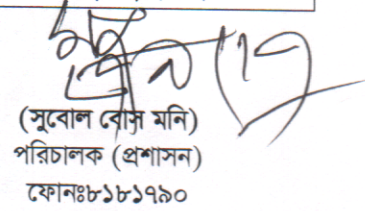 (সুবোল বোস মনি)
পরিচালক (প্রশাসন)
ফোনঃ৮১৮১৭৯০